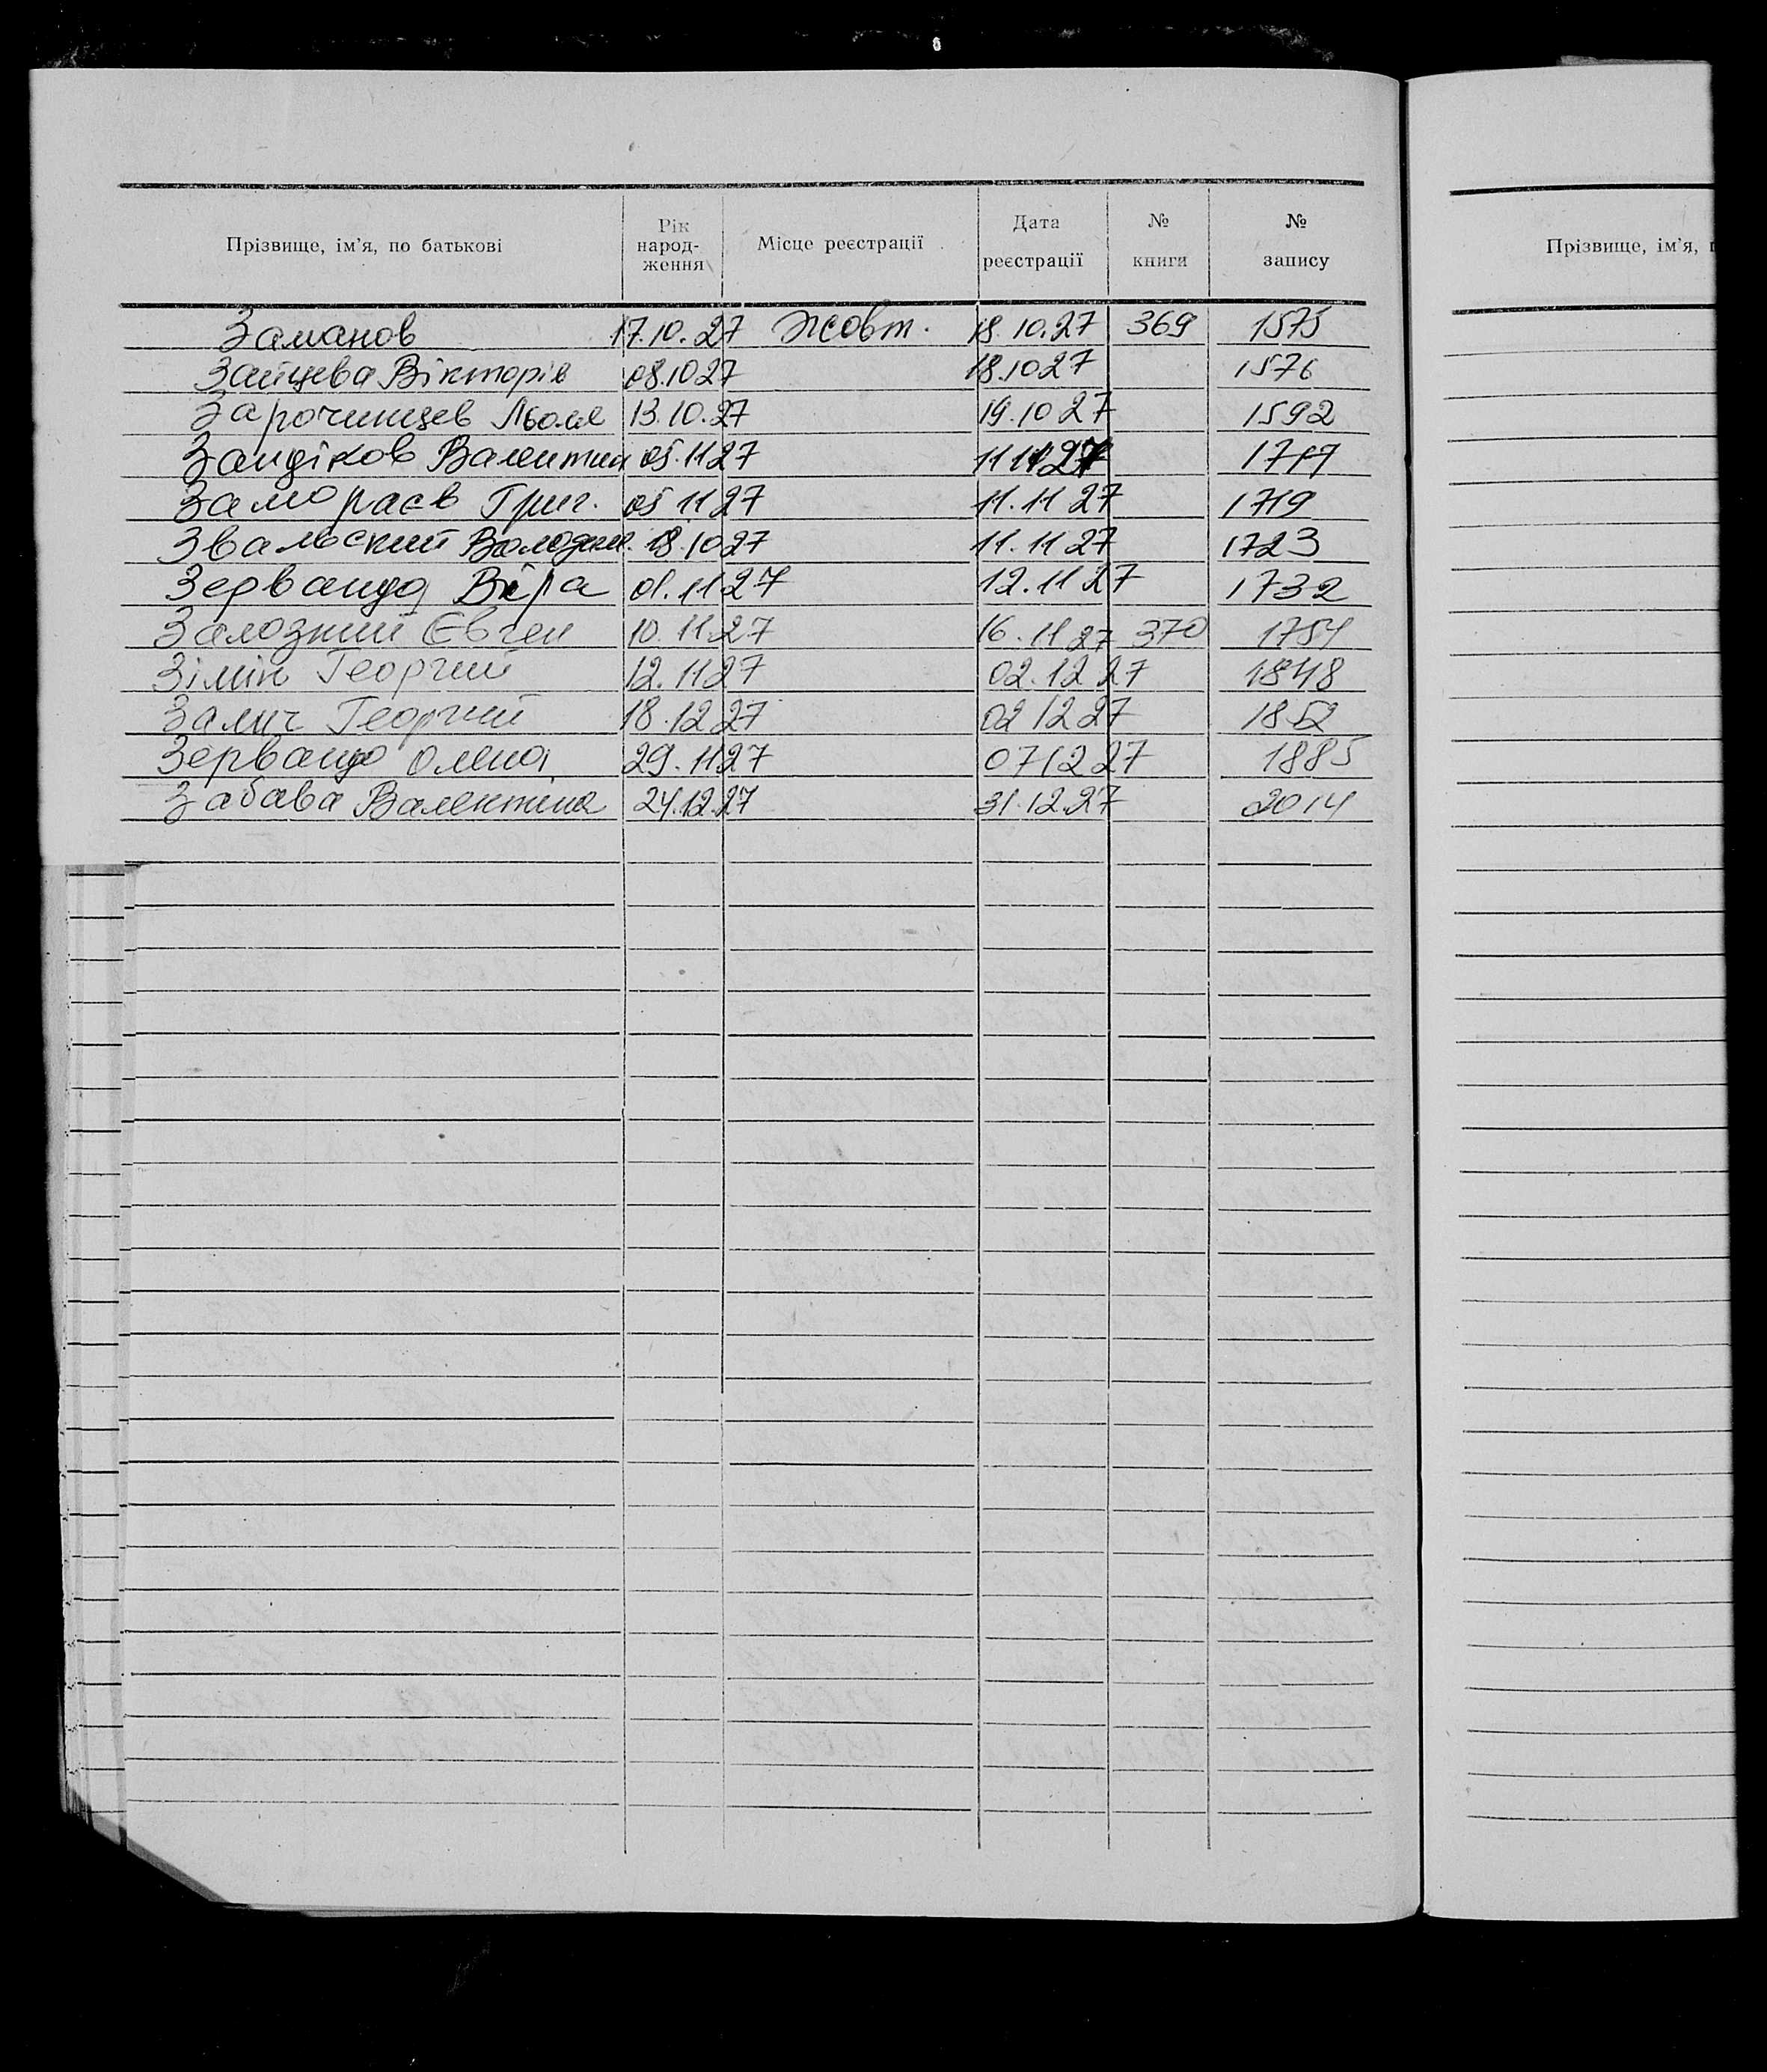 Прізвище, ім'я, по батькові Рік народ- ження Місце реєстрації Дата реєстрації № книги № запису
Заманов 17.10.27 Жовт. 18.10.27 369 1575
Зайцева Вікторія 08.10 27 18.10 27 1576
Зарочинцев Льоля 13.10.27 19.10 27 1592
Валентин 05.11 27 11 11 27
Замораєв Григ. 05 11 27 11.11 27 1719
Звальский Володим. 18.10 27 11.11 27 1723
Віра 01.11 27 12.11 27 1732
Залозний Євген 10.11.27 16.11 27 370 1754
Зімін Георгий 12.11 27 02.12 27 1848
Залич Георгий 18.12 27 02 12 27 1852
Олена 29.11 27 07 12 27 1885
Забава Валентина 24.12.27 31.12.27 2014
Прізвище, ім'я,